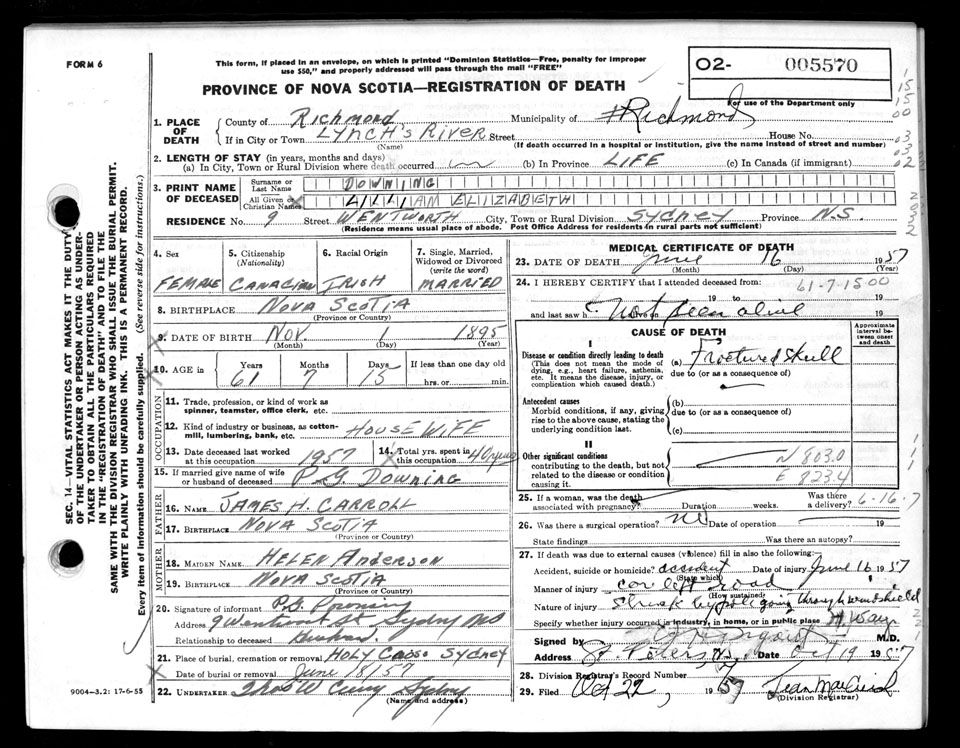 FORM 6
This form, if placed in an envelope, on which is printed "Dominion Statistics—Free, penalty for improper
use $50," and properly addressed will pass through the mail "FREE"
PROVINCE OF NOVA SCOTIA—REGISTRATION OF DEATH
O2- 005570
For use of the Department only
1. PLACE OF DEATH
County of Richmond Municipality of Richmond
If in City or Town LYNCH'S RIVER Street House No.
(Name) (If death occurred in a hospital or institution, give the name instead of street and number)
2. LENGTH OF STAY (in years, months and days)
(a) In City, Town or Rural Division where death occurred (b) In Province LIFE (c) In Canada (if immigrant)
3. PRINT NAME OF DECEASED
Surname or Last Name DOWNING
All Given or Christian Names LILLIAM ELIZABETH
RESIDENCE No. 9 Street WENTWORTH City, Town or Rural Division SYDNEY Province N.S.
(Residence means usual place of abode. Post Office Address for residents in rural parts not sufficient)
4. Sex FEMALE
5. Citizenship (Nationality) CANADIAN
6. Racial Origin IRISH
7. Single, Married, Widowed or Divorced (write the word) MARRIED
8. BIRTHPLACE NOVA SCOTIA
(Province or Country)
9. DATE OF BIRTH NOV. 1 1895
(Month) (Day) (Year)
10. AGE in Years Months Days If less than one day old
61 7 15 hrs. or min.
OCCUPATION
11. Trade, profession, or kind of work as
spinner, teamster, office clerk, etc.
12. Kind of industry or business, as cotton-
mill, lumbering, bank, etc. HOUSE WIFE
13. Date deceased last worked at this occupation 1957
14. Total yrs. spent in this occupation 40 years
15. If married give name of wife
or husband of deceased P G DOWNING
FATHER
16. NAME JAMES H. CARROLL
17. BIRTHPLACE NOVA SCOTIA
(Province or Country)
MOTHER
18. MAIDEN NAME HELEN Anderson
19. BIRTHPLACE NOVA SCOTIA
(Province or Country)
20. Signature of informant P. G. Downing
Address 9 Wentworth St Sydney NS
Relationship to deceased Husband
21. Place of burial, cremation or removal HOLY CROSS SYDNEY
Date of burial or removal June 18/57
22. UNDERTAKER Sydney
(Name and address)
9004-3.2: 17-6-55
MEDICAL CERTIFICATE OF DEATH
23. DATE OF DEATH June 16 1957
(Month) (Day) (Year)
24. I HEREBY CERTIFY that I attended deceased from 61-7-1500
19 to 19
and last saw h alive on 19
Not seen alive
CAUSE OF DEATH
Approximate interval between onset and death
I
Disease or condition directly leading to death
(This does not mean the mode of dying, e.g., heart failure, asthenia, etc. It means the disease, injury, or complication which caused death.)
(a) Fractured Skull
due to (or as a consequence of)
Antecedent causes
Morbid conditions, if any, giving rise to the above cause, stating the underlying condition last.
(b)
due to (or as a consequence of)
(c)
II
Other significant conditions
contributing to the death, but not related to the disease or condition causing it.
N 803.0
E 823.4
25. If a woman, was the death associated with pregnancy? Duration weeks. Was there a delivery? 6-16-7
26. Was there a surgical operation? no Date of operation 19
State findings Was there an autopsy?
27. If death was due to external causes (violence) fill in also the following:
Accident, suicide or homicide? accident Date of injury June 16 1957
(State which)
Manner of injury car left road
(How sustained)
Nature of injury Struck by pole going through windshield
Specify whether injury occurred in industry, in home, or in public place H. Way
Signed by M.D.
Address St. Peters N.S. Date Oct 19 1957
28. Division Registrar's Record Number
29. Filed Oct 22, 1957
(Division Registrar)
SEC. 14—VITAL STATISTICS ACT MAKES IT THE DUTY
OF THE UNDERTAKER OR PERSON ACTING AS UNDER-
TAKER TO OBTAIN ALL THE PARTICULARS REQUIRED
IN THE "REGISTRATION OF DEATH" AND TO FILE THE
SAME WITH THE DIVISION REGISTRAR WHO SHALL ISSUE THE BURIAL PERMIT.
WRITE PLAINLY WITH UNFADING INK. THIS IS A PERMANENT RECORD.
Every item of information should be carefully supplied. (See reverse side for instructions.)